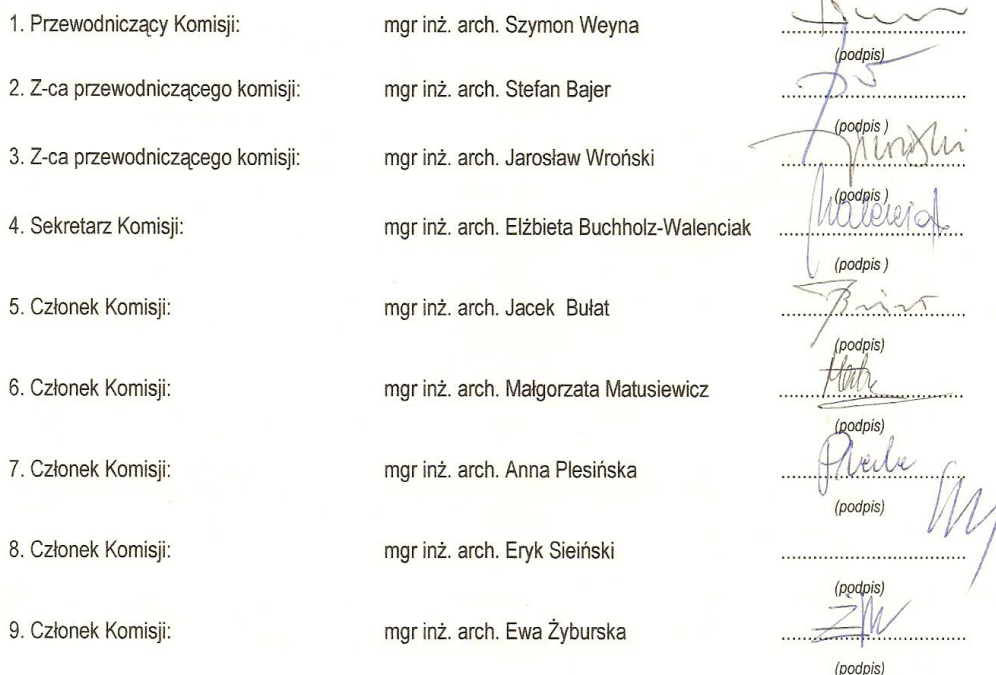 1. Przewodniczący Komisji: mgr inż. arch. Szymon Weyna ........................
(podpis)
2. Z-ca przewodniczącego komisji: mgr inż. arch. Stefan Bajer ........................
(podpis )
3. Z-ca przewodniczącego komisji: mgr inż. arch. Jarosław Wroński ........................
(podpis )
4. Sekretarz Komisji: mgr inż. arch. Elżbieta Buchholz-Walenciak ........................
(podpis )
5. Członek Komisji: mgr inż. arch. Jacek Bułat ........................
(podpis)
6. Członek Komisji: mgr inż. arch. Małgorzata Matusiewicz ........................
(podpis)
7. Członek Komisji: mgr inż. arch. Anna Plesińska ........................
(podpis)
8. Członek Komisji: mgr inż. arch. Eryk Sieiński ........................
(podpis)
9. Członek Komisji: mgr inż. arch. Ewa Żyburska ........................
(podpis)